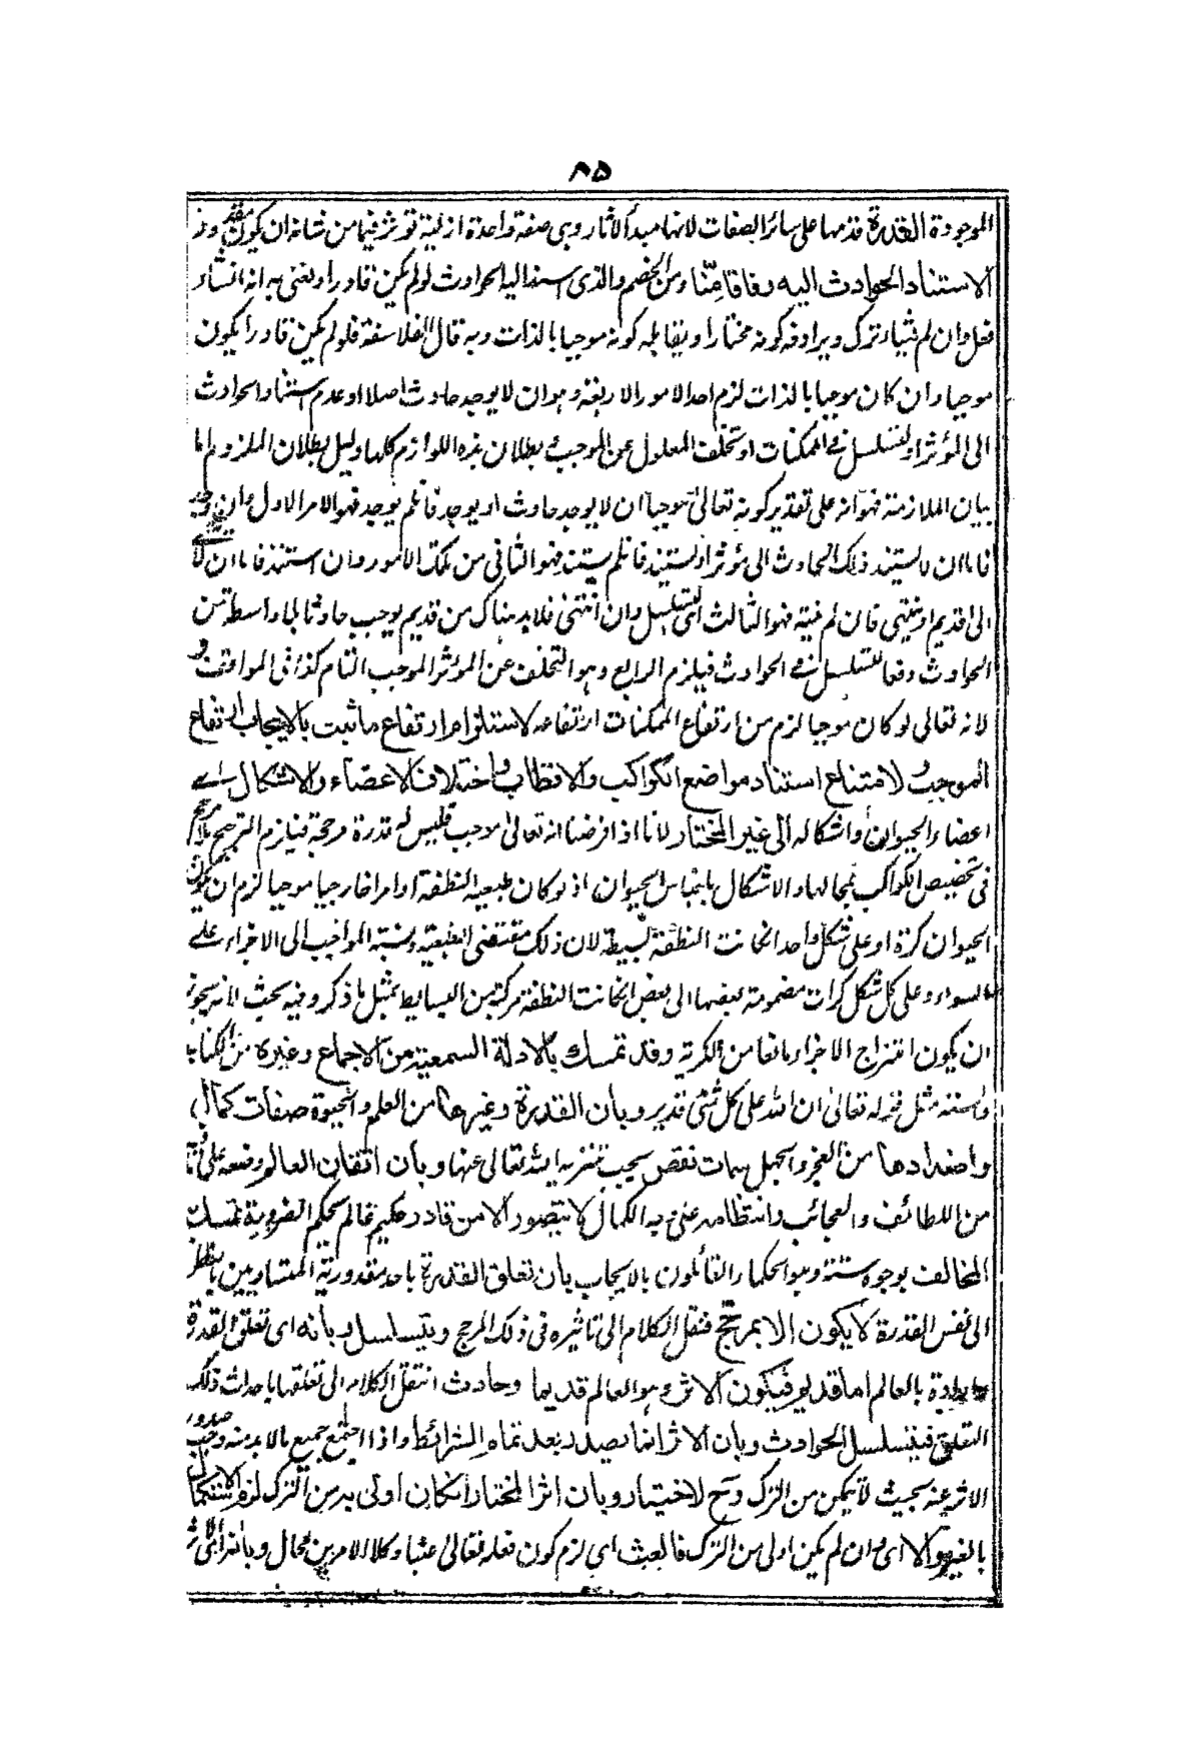 ٨٥
الموجودة القدرة قدمها على سائر الصفات لانها مبدأ الآثار وهى صفة واحدة ازلية تؤثر فيما من شانه ان يكون مقدورا
لاستناد الحوادث اليه وفاقا منّا ومن الخصم والذى استند اليه الحوادث لو لم يكن قادرا ونعنى به انه انشاء
فعل وان لم يشاء ترك ويرادفه كونه مختارا ويقابله كونه موجبا بالذات وبه قال الفلاسفة فلو لم يكن قادرا يكون
موجبا وان كان موجبا بالذات لزم احد الامور الاربعة وهو ان لا يوجد حادث اصلا او عدم استناد الحوادث
الى المؤثر او تسلسل فى الممكنات او تخلف المعلول عن الموجب وبطلان هذه اللوازم كلها دليل بطلان الملزوم اما
بيان الملازمة فهو انه على تقدير كونه تعالى موجبا ان لا يوجد حادث او يوجد فانلم يوجد فهو الامر الاول وان وجد
فاما ان لا يستند ذلك الحادث الى مؤثر او يستند فانلم يستند فهو الثانى من تلك الامور وان استند فاما ان لا ينتهى
الى قديم او ينتهى فان لم ينته فهو الثالث اى التسلسل وان انتهى فلا بد هناك من قديم يوجب حادثا بلا واسطة من
الحوادث دفعا للتسلسل فى الحوادث فيلزم الرابع وهو التخلف عن المؤثر الموجب التام كذا فى المواقف و
لانه تعالى لو كان موجبا لزم من ارتفاع الممكنات ارتفاعه لاستلزام ارتفاع ما ثبت بالايجاب ارتفاع
الموجب و لامتناع استناد مواضع الكواكب والاقطاب واختلاف الاعضاء والاشكال اے
اعضاء الحيوان واشكاله الى غير المختار لانا اذا فرضنا انه تعالى موجب فليس له قدرة مرجحة فيلزم الترجيح بلا مرجح
فى تخصيص الكواكب بمحالها والاشكال باجناس الحيوان اذ لو كان طبيعة النطفة او امرا خارجيا موجبا لزم ان يكون
الحيوان كرة او على شكل واحد انكانت النطفة بسيطة لان ذلك مقتضى الطبيعة ونسبة الموجب الى الاجزاء على
السواء وعلى كل شكل كرات مضمومة بعضها الى بعض انكانت النطفة مركبة من البسايط بمثل ما ذكر وفيه بحث لانه يجوز
ان يكون امتزاج الاجزاء مانعا من الكرية وقد تمسك بالادلة السمعية من الاجماع وغيره من الكتاب
والسنة مثل قوله تعالى ان الله على كل شئ قدير وبان القدرة وغيرها من العلم والحيوة صفات كمال
واضدادها من العجز والجهل سمات نقص يجب تنزيه الله تعالى عنها وبان اتقان العالم وضعه على
من اللطائف والعجائب وانتظامه على وجه الكمال لا يتصور الا من قادر حكيم عالم بحكم الضرورية تمسك
المخالف بوجوه ستة وهو الحكماء القائلون بالايجاب بان تعلق القدرة باحد مقدورية المتساويين بالنظر
الى نفس القدرة لا يكون الا بمرجح فنقل الكلام الى تاثيره فى ذلك المرجح ويتسلسل وبانه اى تعلق القدرة
بالعالم اما قديم فيكون الاثر وهو العالم قديما وحادث انتقل الكلام الى تعلقها باحداث ذلك
التعلق فيتسلسل الحوادث وبان الاثر انما يصدر بعد تمام الشرائط واذا اجتمع جميع ما لا بد منه وجب صدور
الاثر عنه بحيث لا يمكن من الترك وح لا اختيار وبان اثر المختار انكان اولى به من الترك لزم الاستكمال
بالغير والا اى وان لم يكن اولى من الترك فالعبث اى لزم كون فعله تعالى عبثا وكلا الامرين محال وبانه اى